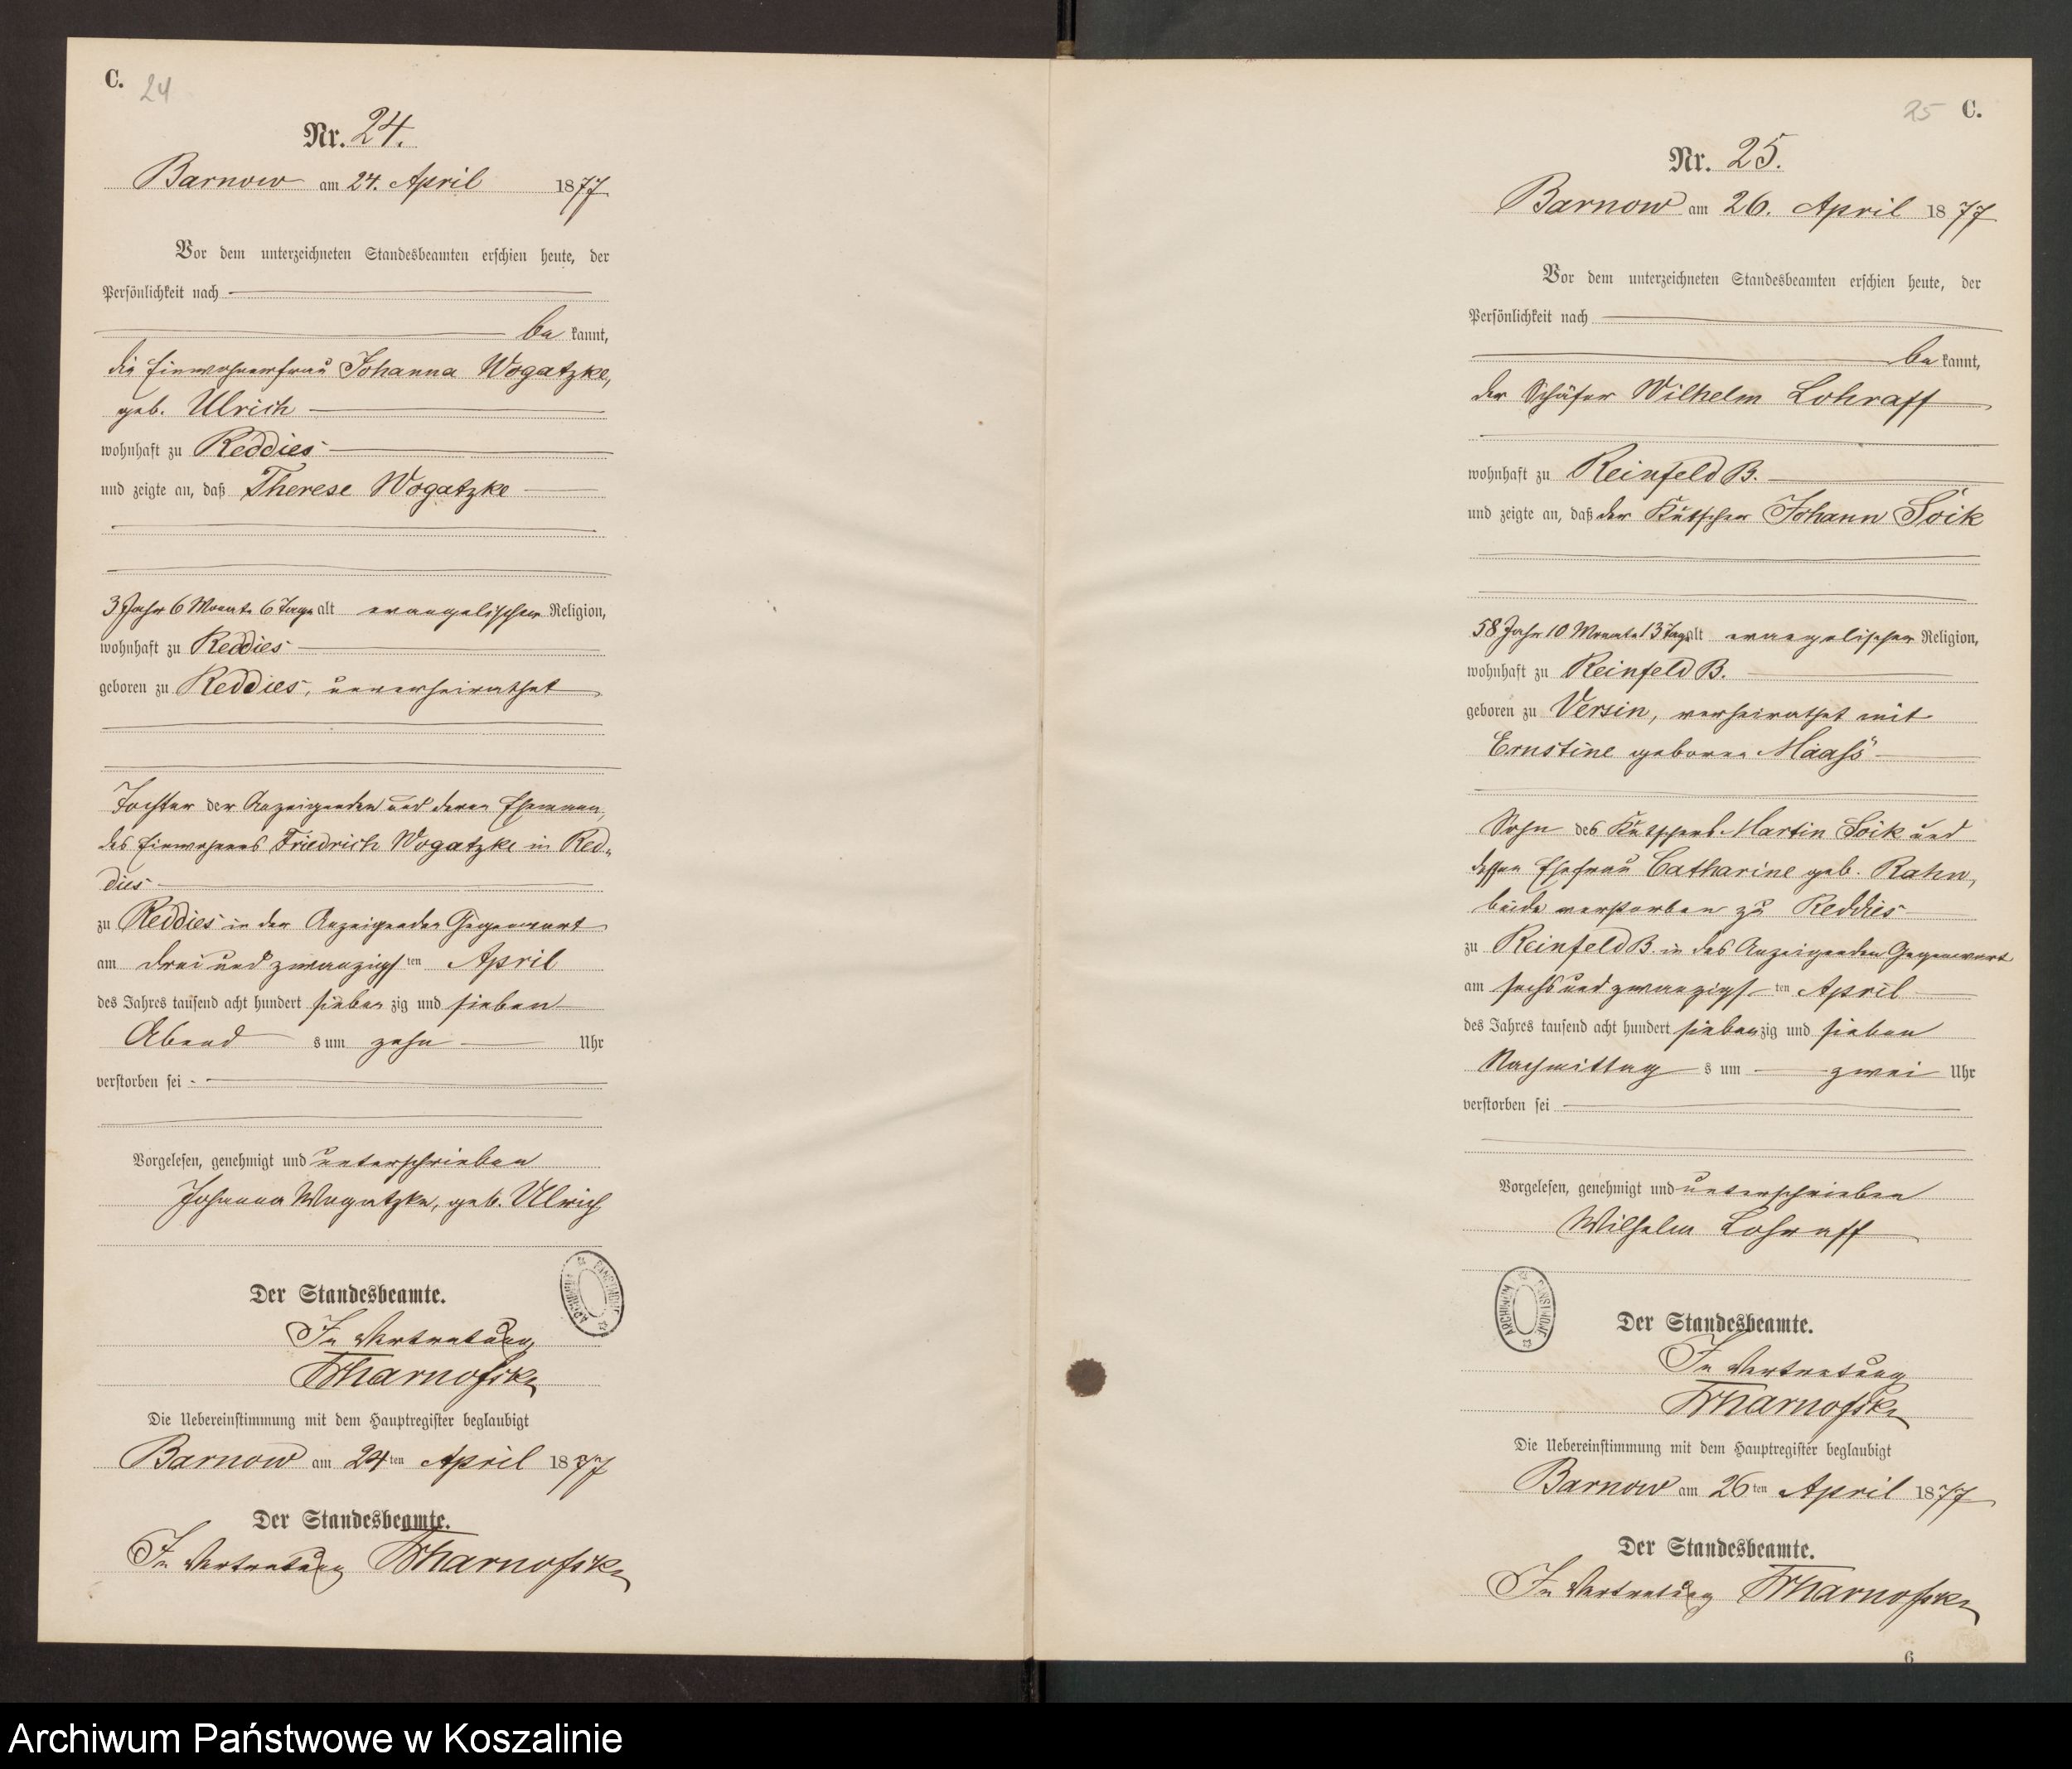 C. 24
Nr. 24.
Barnow am 24. April 1877
Vor dem unterzeichneten Standesbeamten erschien heute, der
Persönlichkeit nach
be kannt,
die Einwohnerfrau Johanna Wogatzke,
geb. Ulrich
wohnhaft zu Reddies
und zeigte an, daß Therese Wogatzke
3 Jahr 6 Monate 6 Tage alt evangelischer Religion,
wohnhaft zu Reddies
geboren zu Reddies, unverheirathet
Tochter der Anzeigenden und deren Ehemann,
des Einwohners Friedrich Wogatzke in Red-
dies
zu Reddies in der Anzeigenden Gegenwart
am drei und zwanzigsten April
des Jahres tausend acht hundert siebenzig und sieben
Abends um zehn Uhr
verstorben sei
Vorgelesen, genehmigt und unterschrieben
Johanna Wogatzke, geb. Ulrich
Der Standesbeamte.
In Vertretung
Die Uebereinstimmung mit dem Hauptregister beglaubigt
Barnow am 24ten April 1877
Der Standesbeamte.
In Vertretung
25 C.
Nr. 25.
Barnow am 26. April 1877
Vor dem unterzeichneten Standesbeamten erschien heute, der
Persönlichkeit nach
be kannt,
der Schäfer Wilhelm Lohraff
wohnhaft zu Reinfeld B.
und zeigte an, daß der Kutscher Johann Soik
58 Jahr 10 Monate 13 Tage alt evangelischer Religion,
wohnhaft zu Reinfeld B.
geboren zu Versin, verheirathet mit
Ernstine geboren Maaß
Sohn des Kutschers Martin Soik und
dessen Ehefrau Catharine geb. Rahn,
beide verstorben zu Reddies
zu Reinfeld B. in des Anzeigenden Gegenwart
am sechs und zwanzigsten April
des Jahres tausend acht hundert siebenzig und sieben
Nachmittags um zwei Uhr
verstorben sei
Vorgelesen, genehmigt und unterschrieben
Wilhelm Lohraff
ARCHIWUM PAŃSTWOWE
Der Standesbeamte.
In Vertretung
Die Uebereinstimmung mit dem Hauptregister beglaubigt
Barnow am 26ten April 1877
Der Standesbeamte.
In Vertretung
6
Archiwum Państwowe w Koszalinie